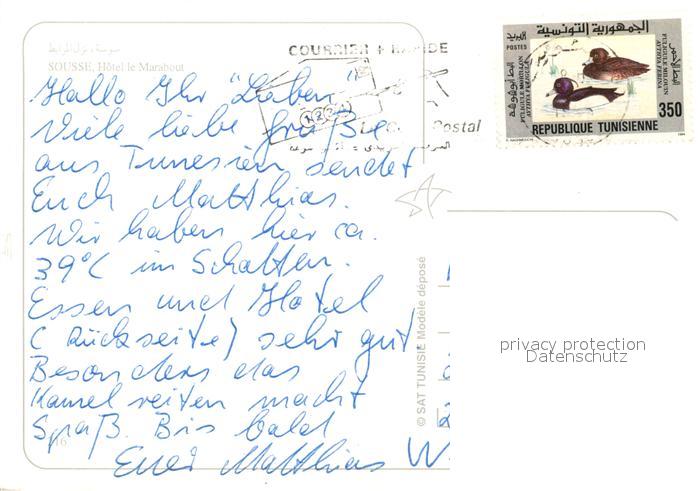 سوسة، نزل المرابط
SOUSSE, Hôtel le Marabout
COURRIER + RAPIDE
Hallo Ihr "Lieben"
Viele liebe Grüße
aus Tunesien sendet
Euch Matthias.
Wir haben hier ca.
39°C im Schatten.
Essen und Hotel
(Rückseite) sehr gut.
Besonders das
Kamel reiten macht
Spaß. Bis bald
Euer Matthias W
116
1234
Postal
© SAT TUNISIE Modèle déposé
الجمهورية التونسية
POSTES
FULIGULE MILOUIN
AYTHYA FERINA
FULIGULE MORILLON
AYTHYA FULIGULA
350
REPUBLIQUE TUNISIENNE
privacy protection
Datenschutz